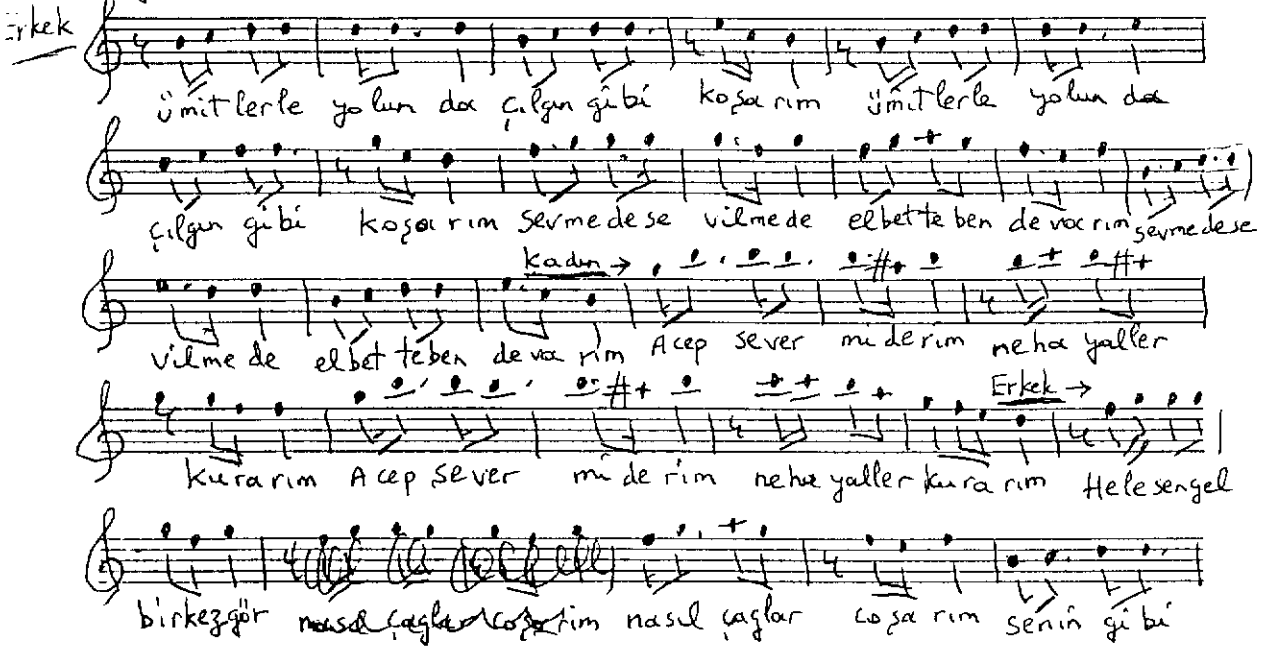 Erkek
ümitlerle yolun da çılgın gibi koşa rım ümitlerle yolun da
çılgın gibi koşa rım sevmedese vilmede elbette ben de va rım sevmedese
Kadın →
vilme de elbet te ben de va rım Acep sever mi derim ne ha yaller
Erkek →
kura rım Acep sever mi de rim ne ha yaller kura rım Hele sengel
bir kez gör nasıl çağlar coşa rım nasıl çağlar coşa rım senin gi bi